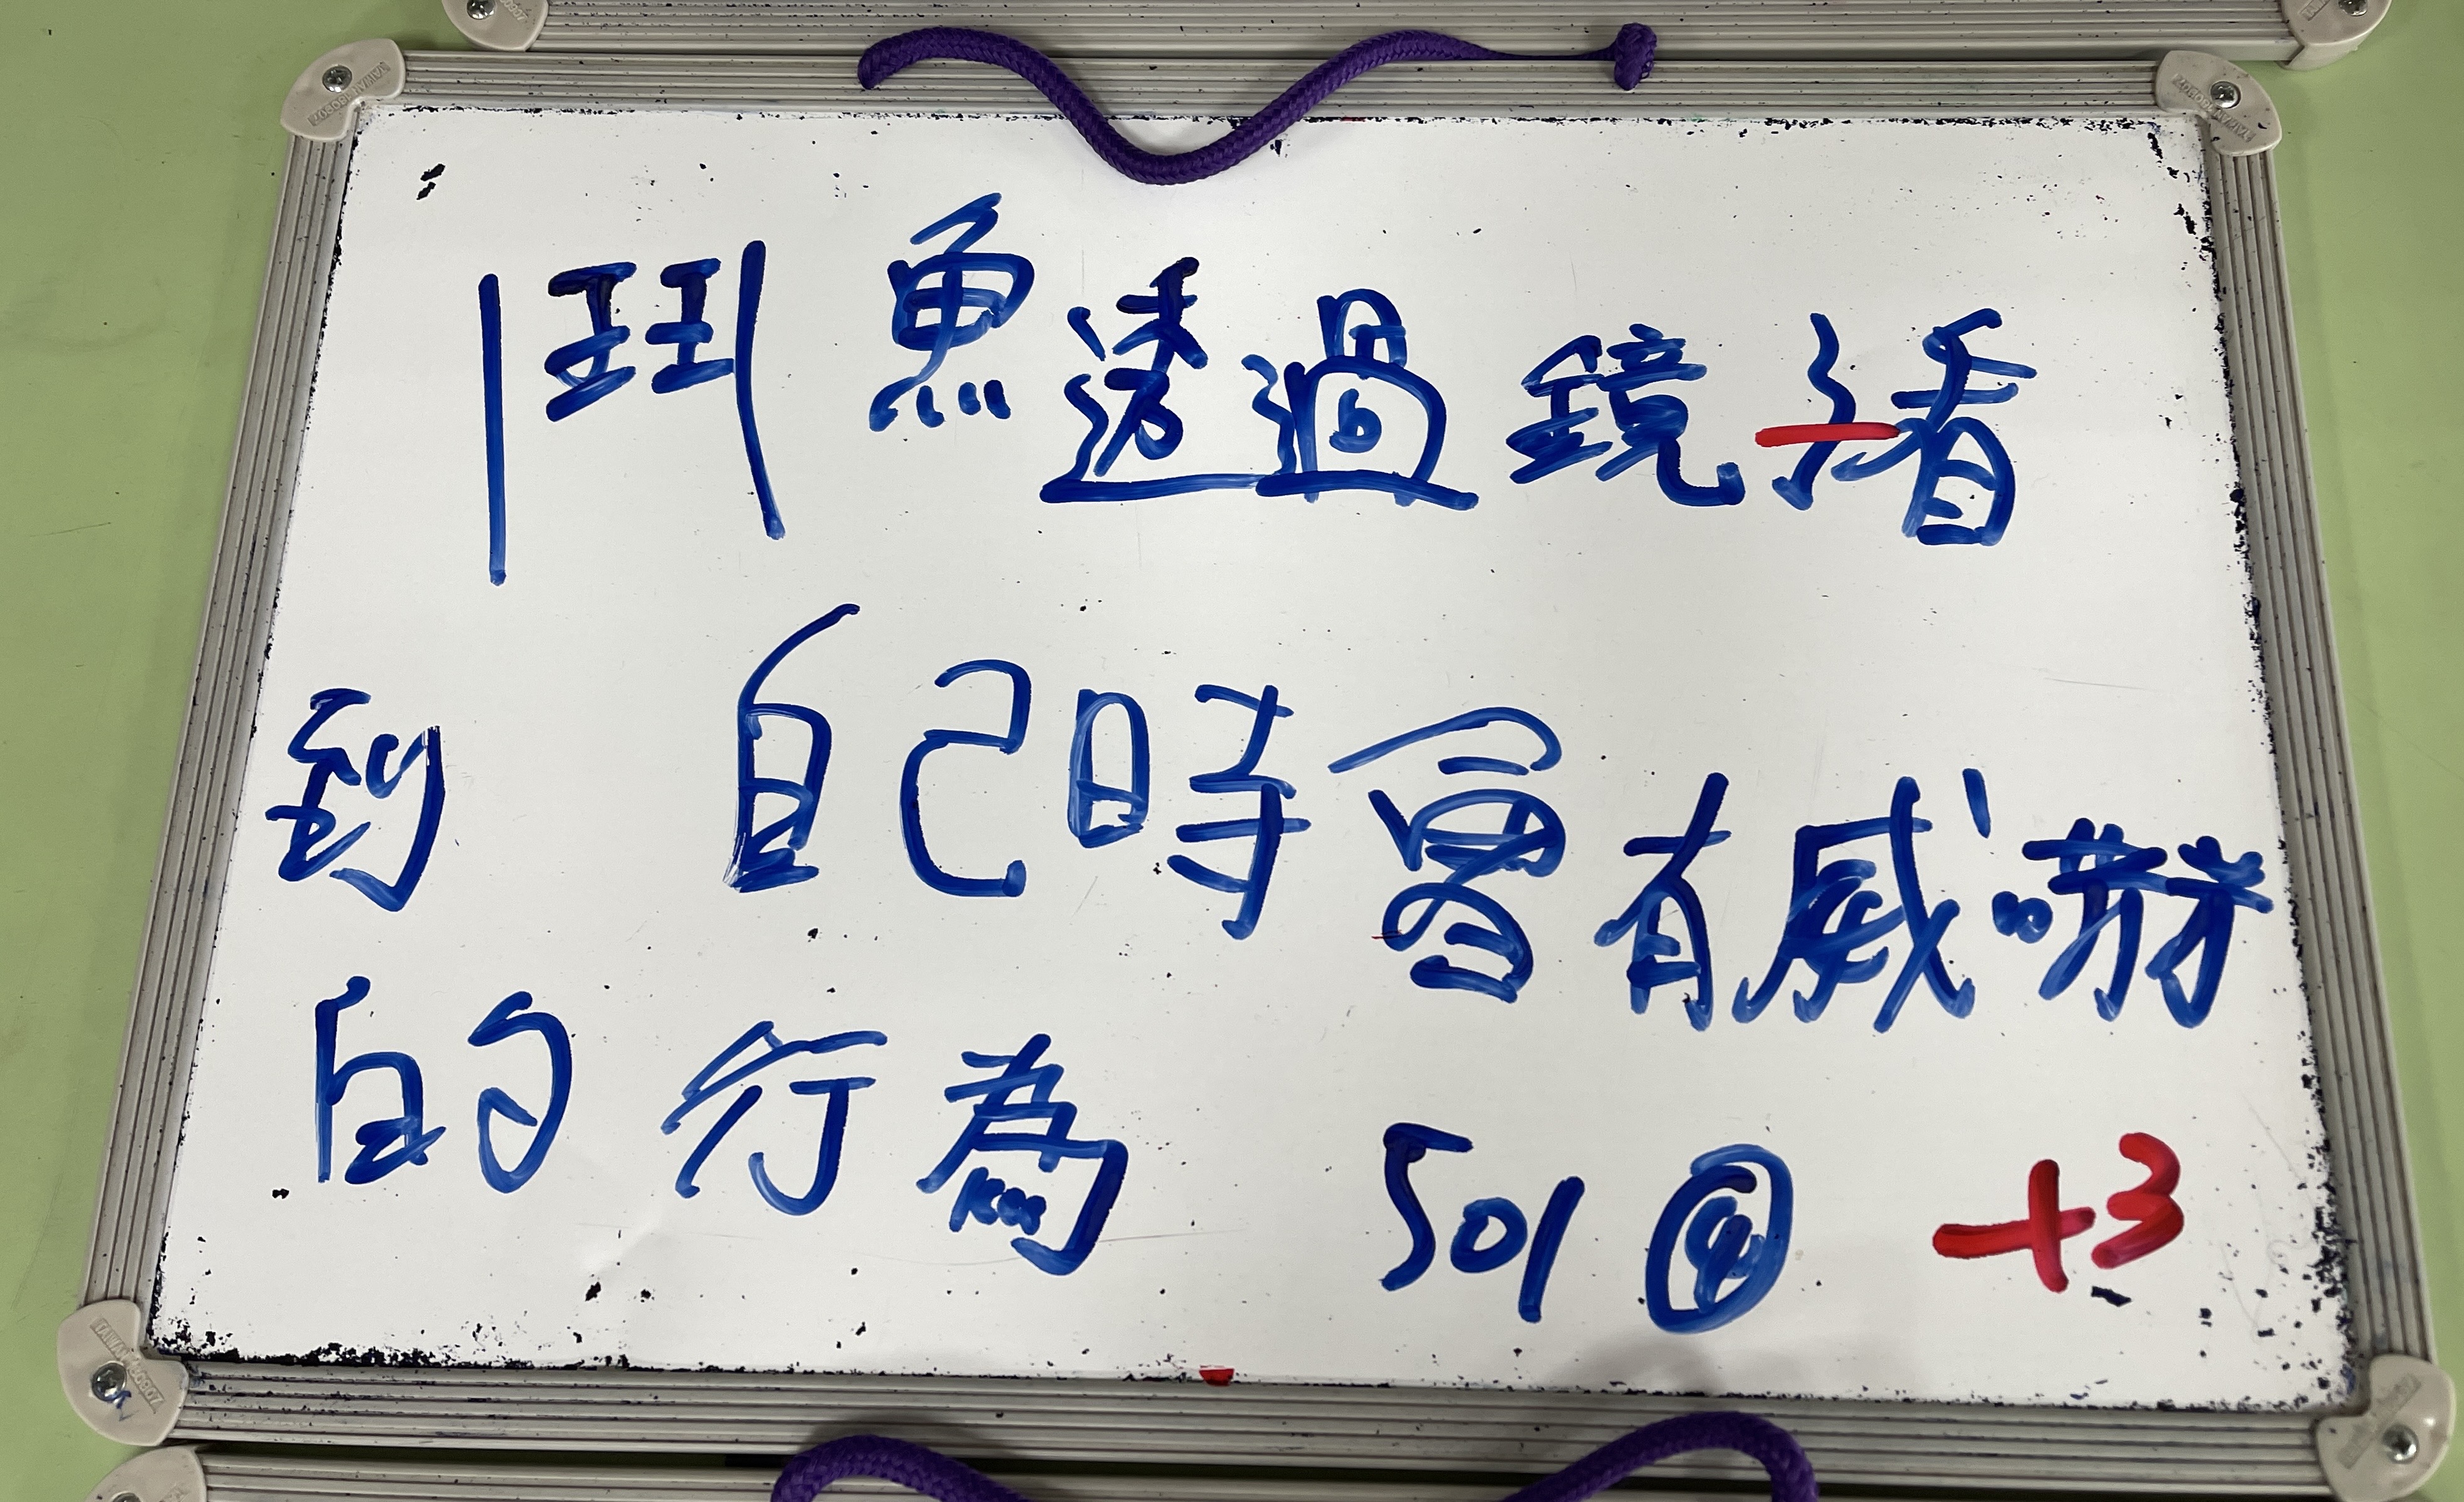 鬥魚透過鏡子看
到 自己時會有威嚇
的行為 501 ④ +3